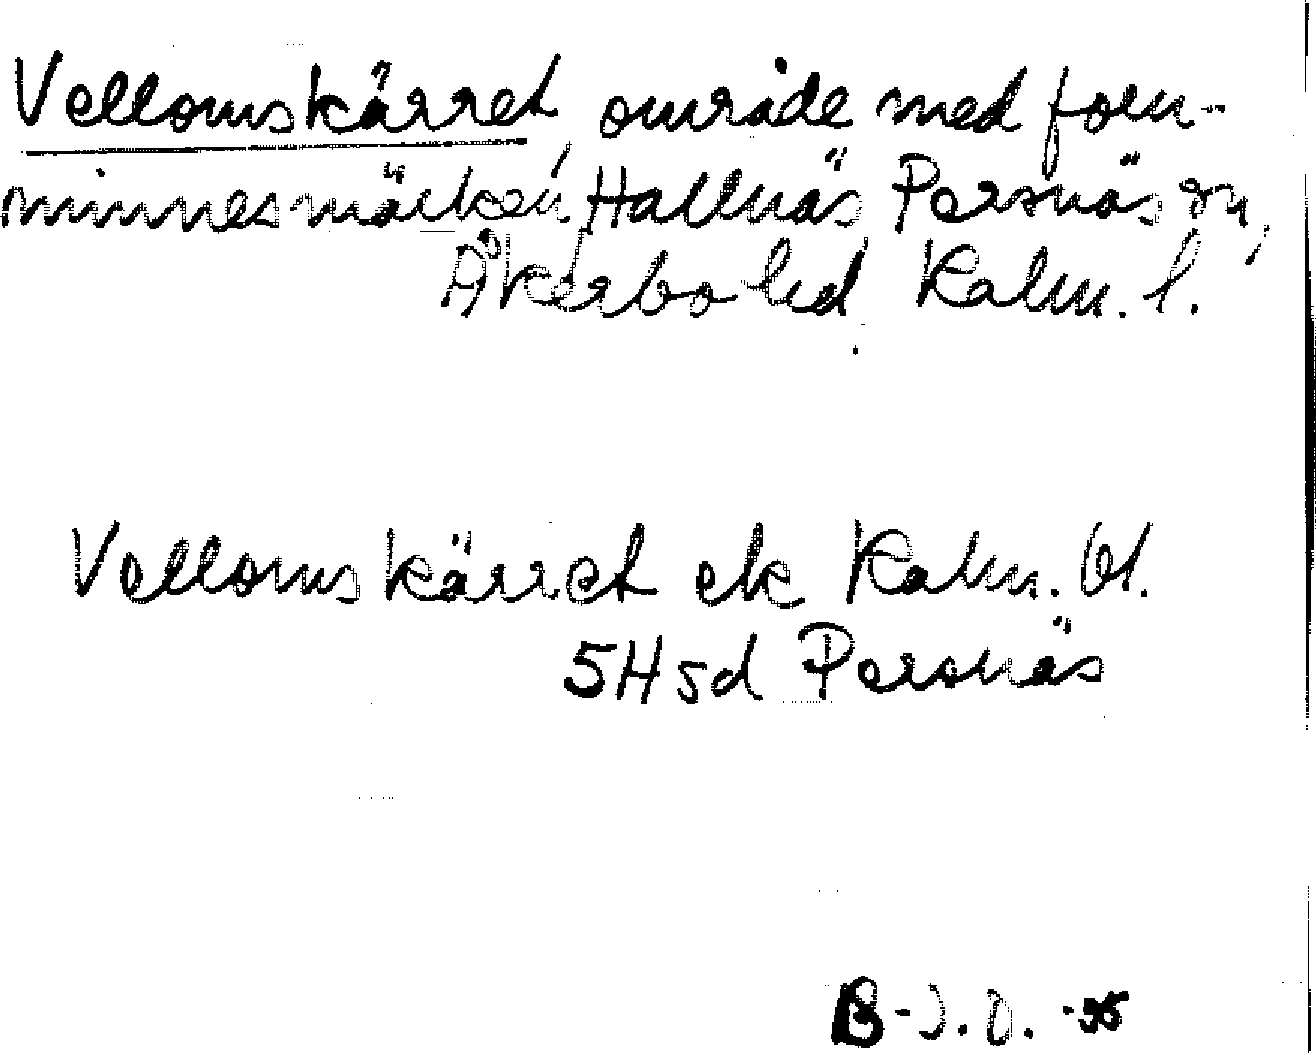 Vellomskärret, område med forn-
minnesmärken, Hallnäs Persnäs sn,
Åkerbo hd Kalm. l.
Vellomskärret ek Kalm. öl.
5H5d Persnäs
B-J.O. -35